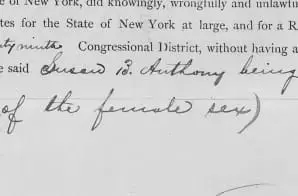 e of New York, did knowingly, wrongfully and unlawfu
tes for the State of New York at large, and for a R
ty ninth Congressional District, without having a
e said Susan B. Anthony being
of the female sex)